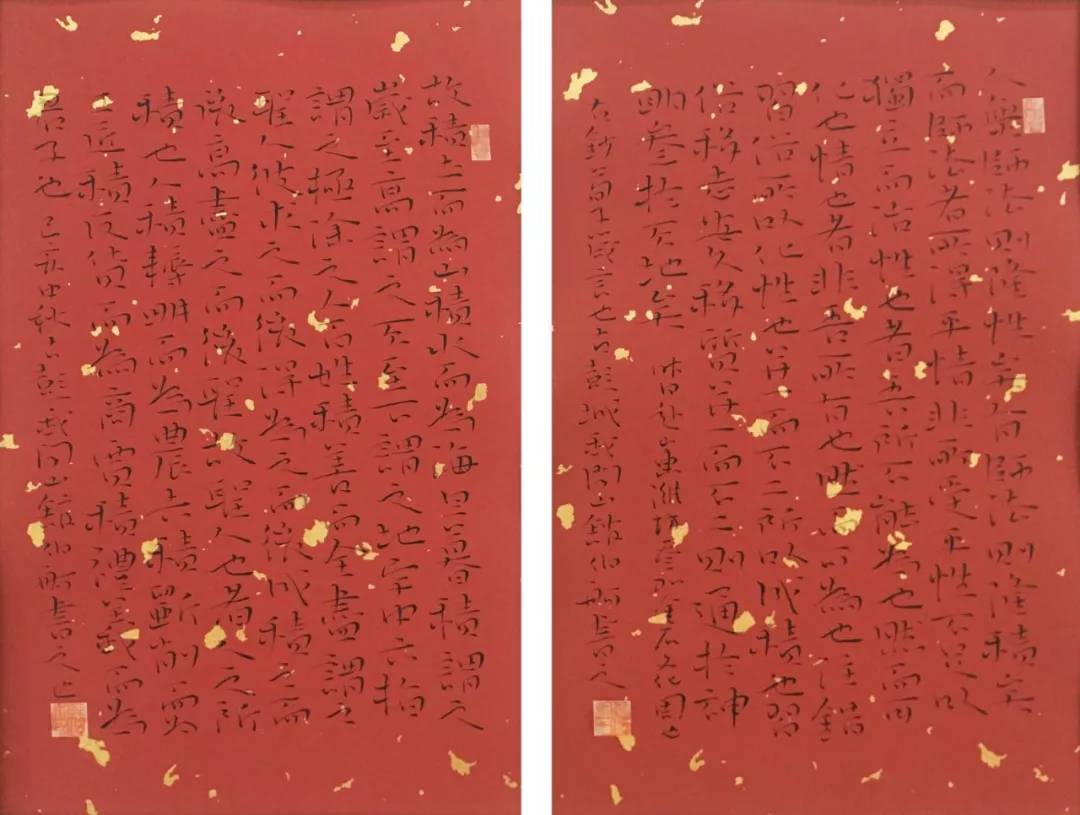 人無師法則隆性矣有師法則隆積矣
而師法者所得乎情非所受乎性不足以
獨立而治性也者吾所不能為也然而可
化也情也者非吾所有也然而可為也注錯
習俗所以化性也并一而不二所以成積也習
俗移志安久移質并一而不二則通於神
明參於天地矣 休日赴山東濰坊
右鈔荀子箴言也古彭城山館伯舸書之
故積土而為山積水而為海旦暮積謂之
歲至高謂之天至下謂之地宇中六指
謂之極涂之人百姓積善而全盡謂之
聖人彼求之而後得為之而後成積之而
後高盡之而後聖故聖人也者人之所
積也人積耨耕而為農夫積斲削而為
工匠積反貨而為商賈積禮義而為
君子也 己亥中秋古彭城山館伯舸書之